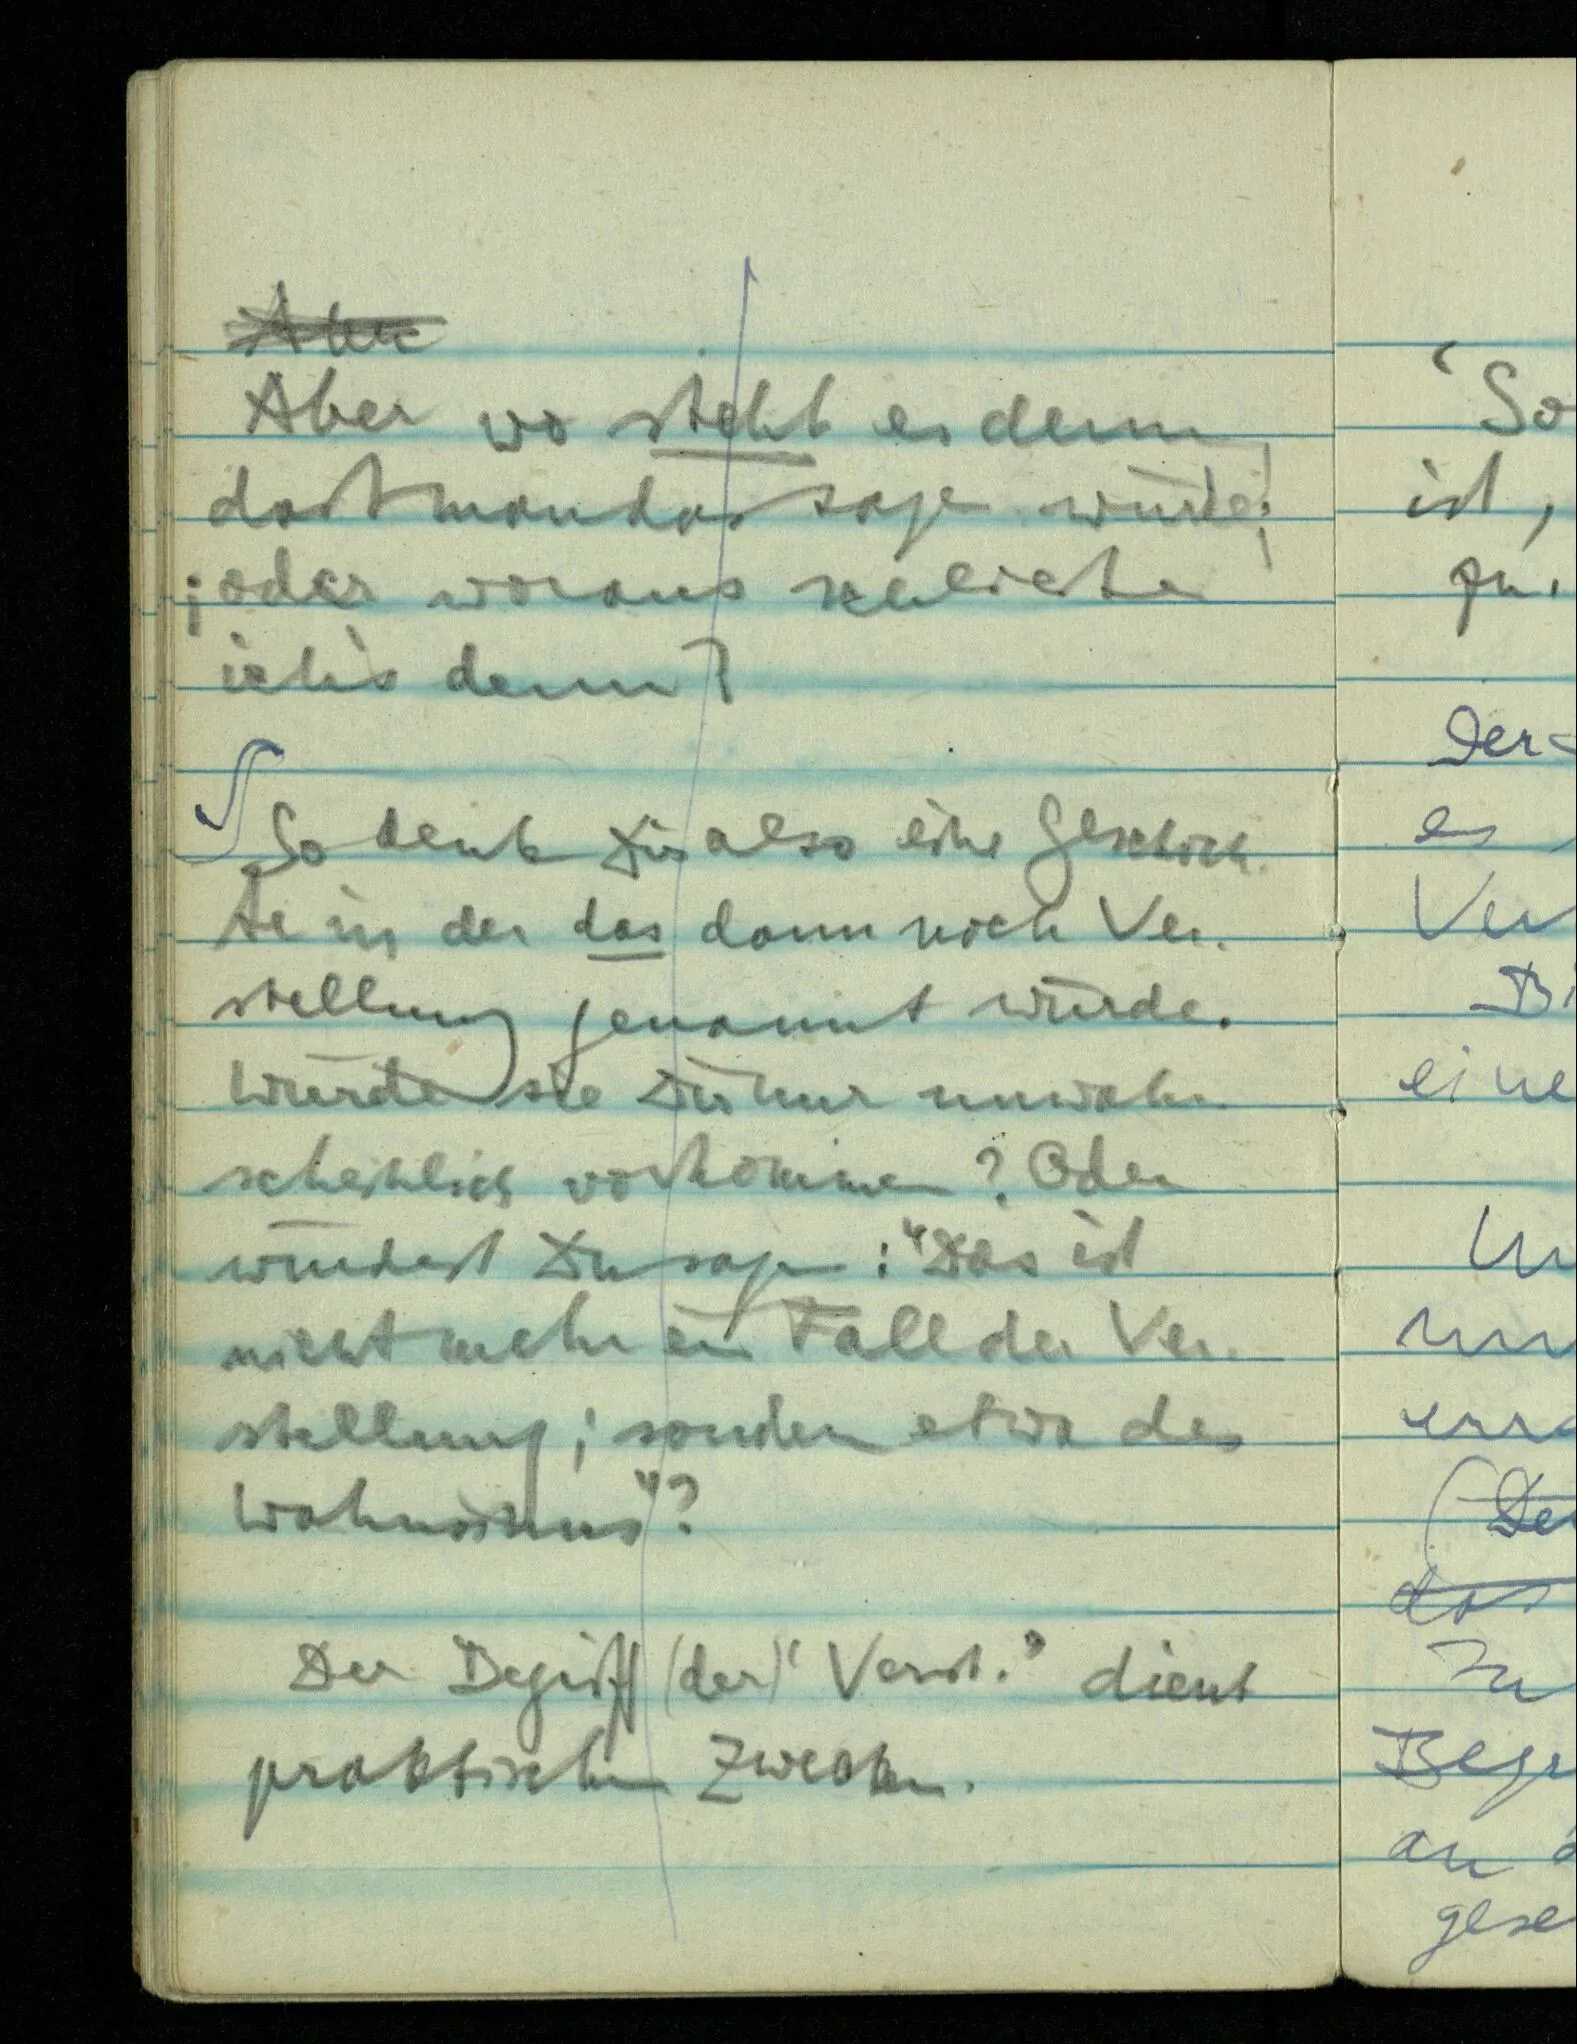 Aber
Aber wo steht es denn
daß man das sagen würde;
; oder woraus schließe
ich's denn?
∫ So denk Dir also eine Geschich-
te in der das dann noch Ver-
stellung genannt würde.
Würde sie Dir nur unwahr-
scheinlich vorkommen? Oder
würdest Du sagen: "Das ist
nicht mehr ein Fall der Ver-
stellung; sondern etwa des
Wahnsinns"?
Der Begriff (der) 'Verst.' dient
praktischen Zwecken.
'So
ist,
es
Ver
eine
das
Begr
an